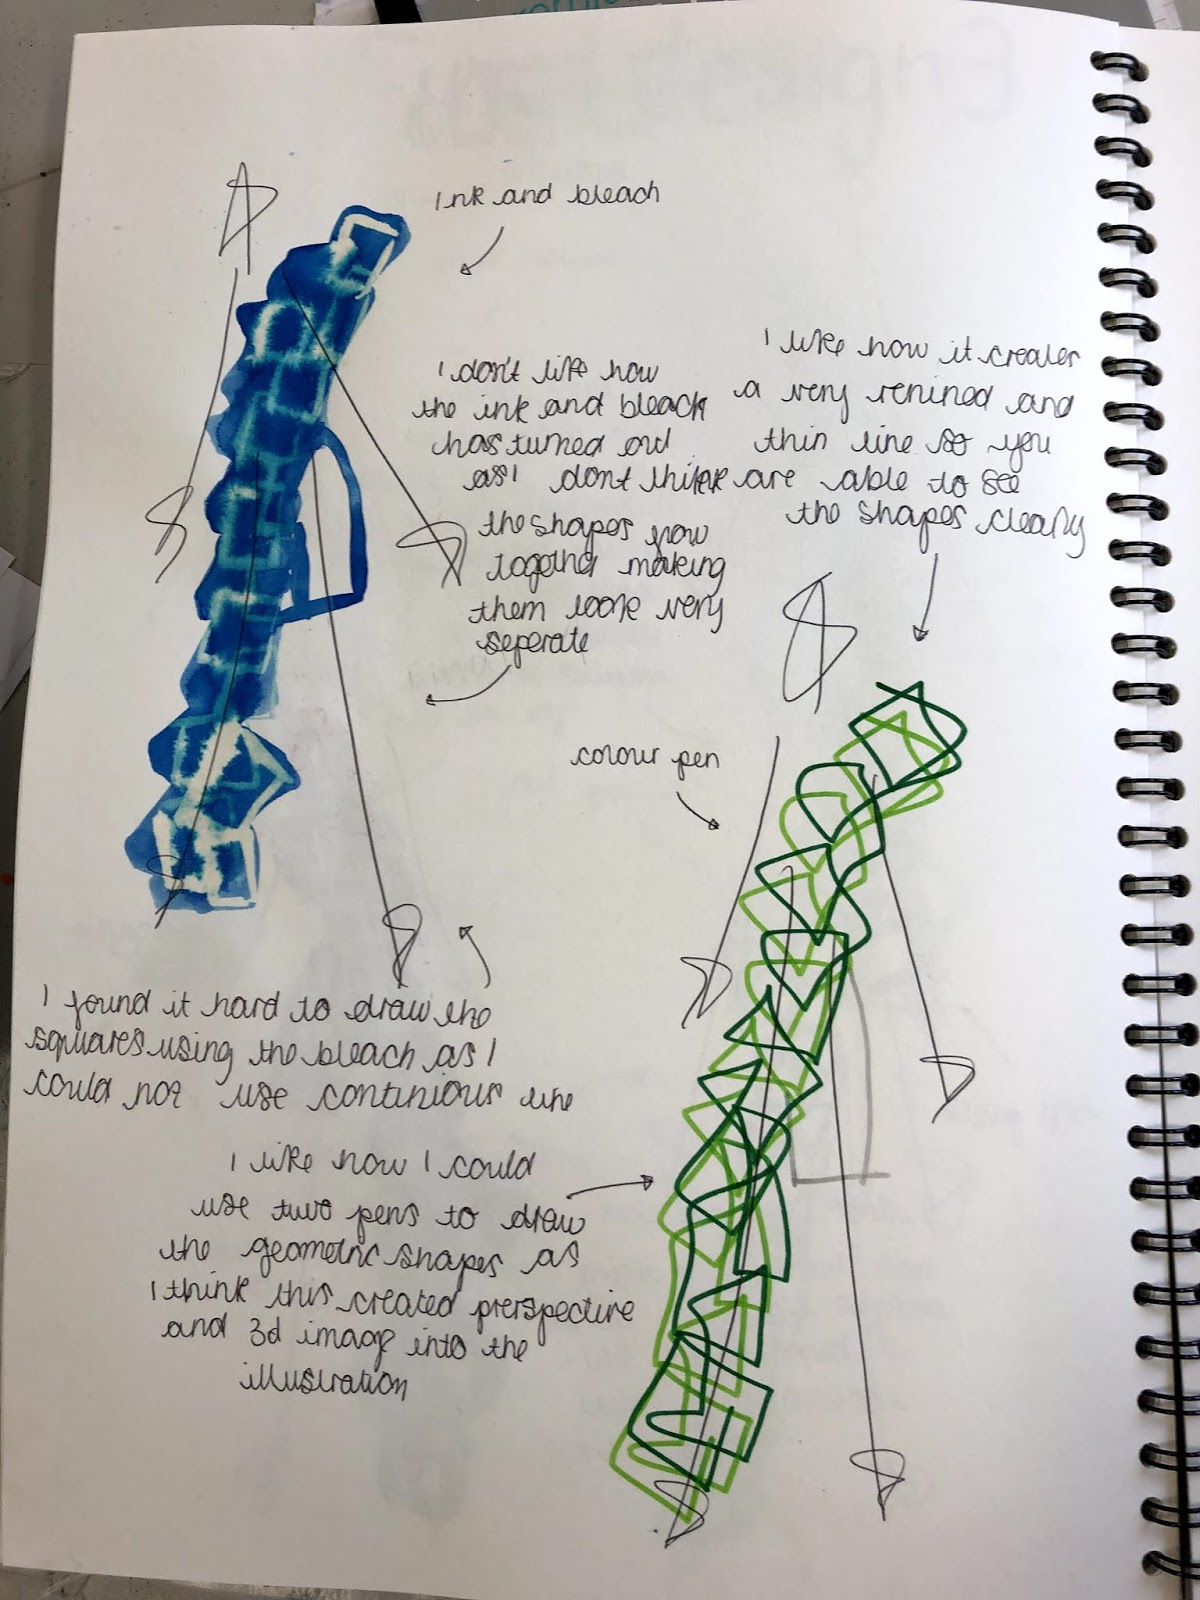 Ink and bleach
I don't like how
the ink and bleach
has turned out
as I don't think
the shapes flow
together making
them look very
seperate
I like how it creates
a very refined and
thin line so you
are able to see
the shapes clearly
colour pen
I found it hard to draw the
squares using the bleach as I
could not use continious line
I like how I could
use two pens to draw
the geometric shapes as
I think this created prerspective
and 3d image into the
illustration